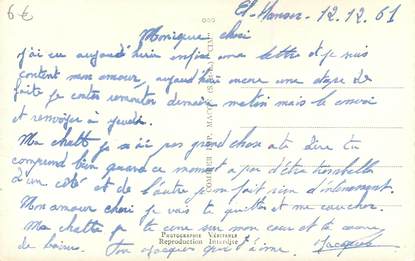 6€
El-Hanser 12.12.61
Monique cheri
j'ai eu aujourd'hui enfin une lettre et je suis
content mon amour, aujourd'hui encore une étape de
faite je contes remonter demain matin mais le convoi
et renvoyer à jeudi.
Ma chatte je s ai pas grand chose a te dire tu
comprend bien quand ce moment a par d'être tranquille
d'un côté et de l'autre jon fait rien d'intéressant.
Mon amour cheri je vais te quitter et me coucher.
Ma chatte je te serre sur mon cœur et te couvre
de baisers. Ton Jacques qui t'aime. Jacques
PHOTOGRAPHIE VÉRITABLE
Reproduction Interdite
COMBIER IMP. MACON